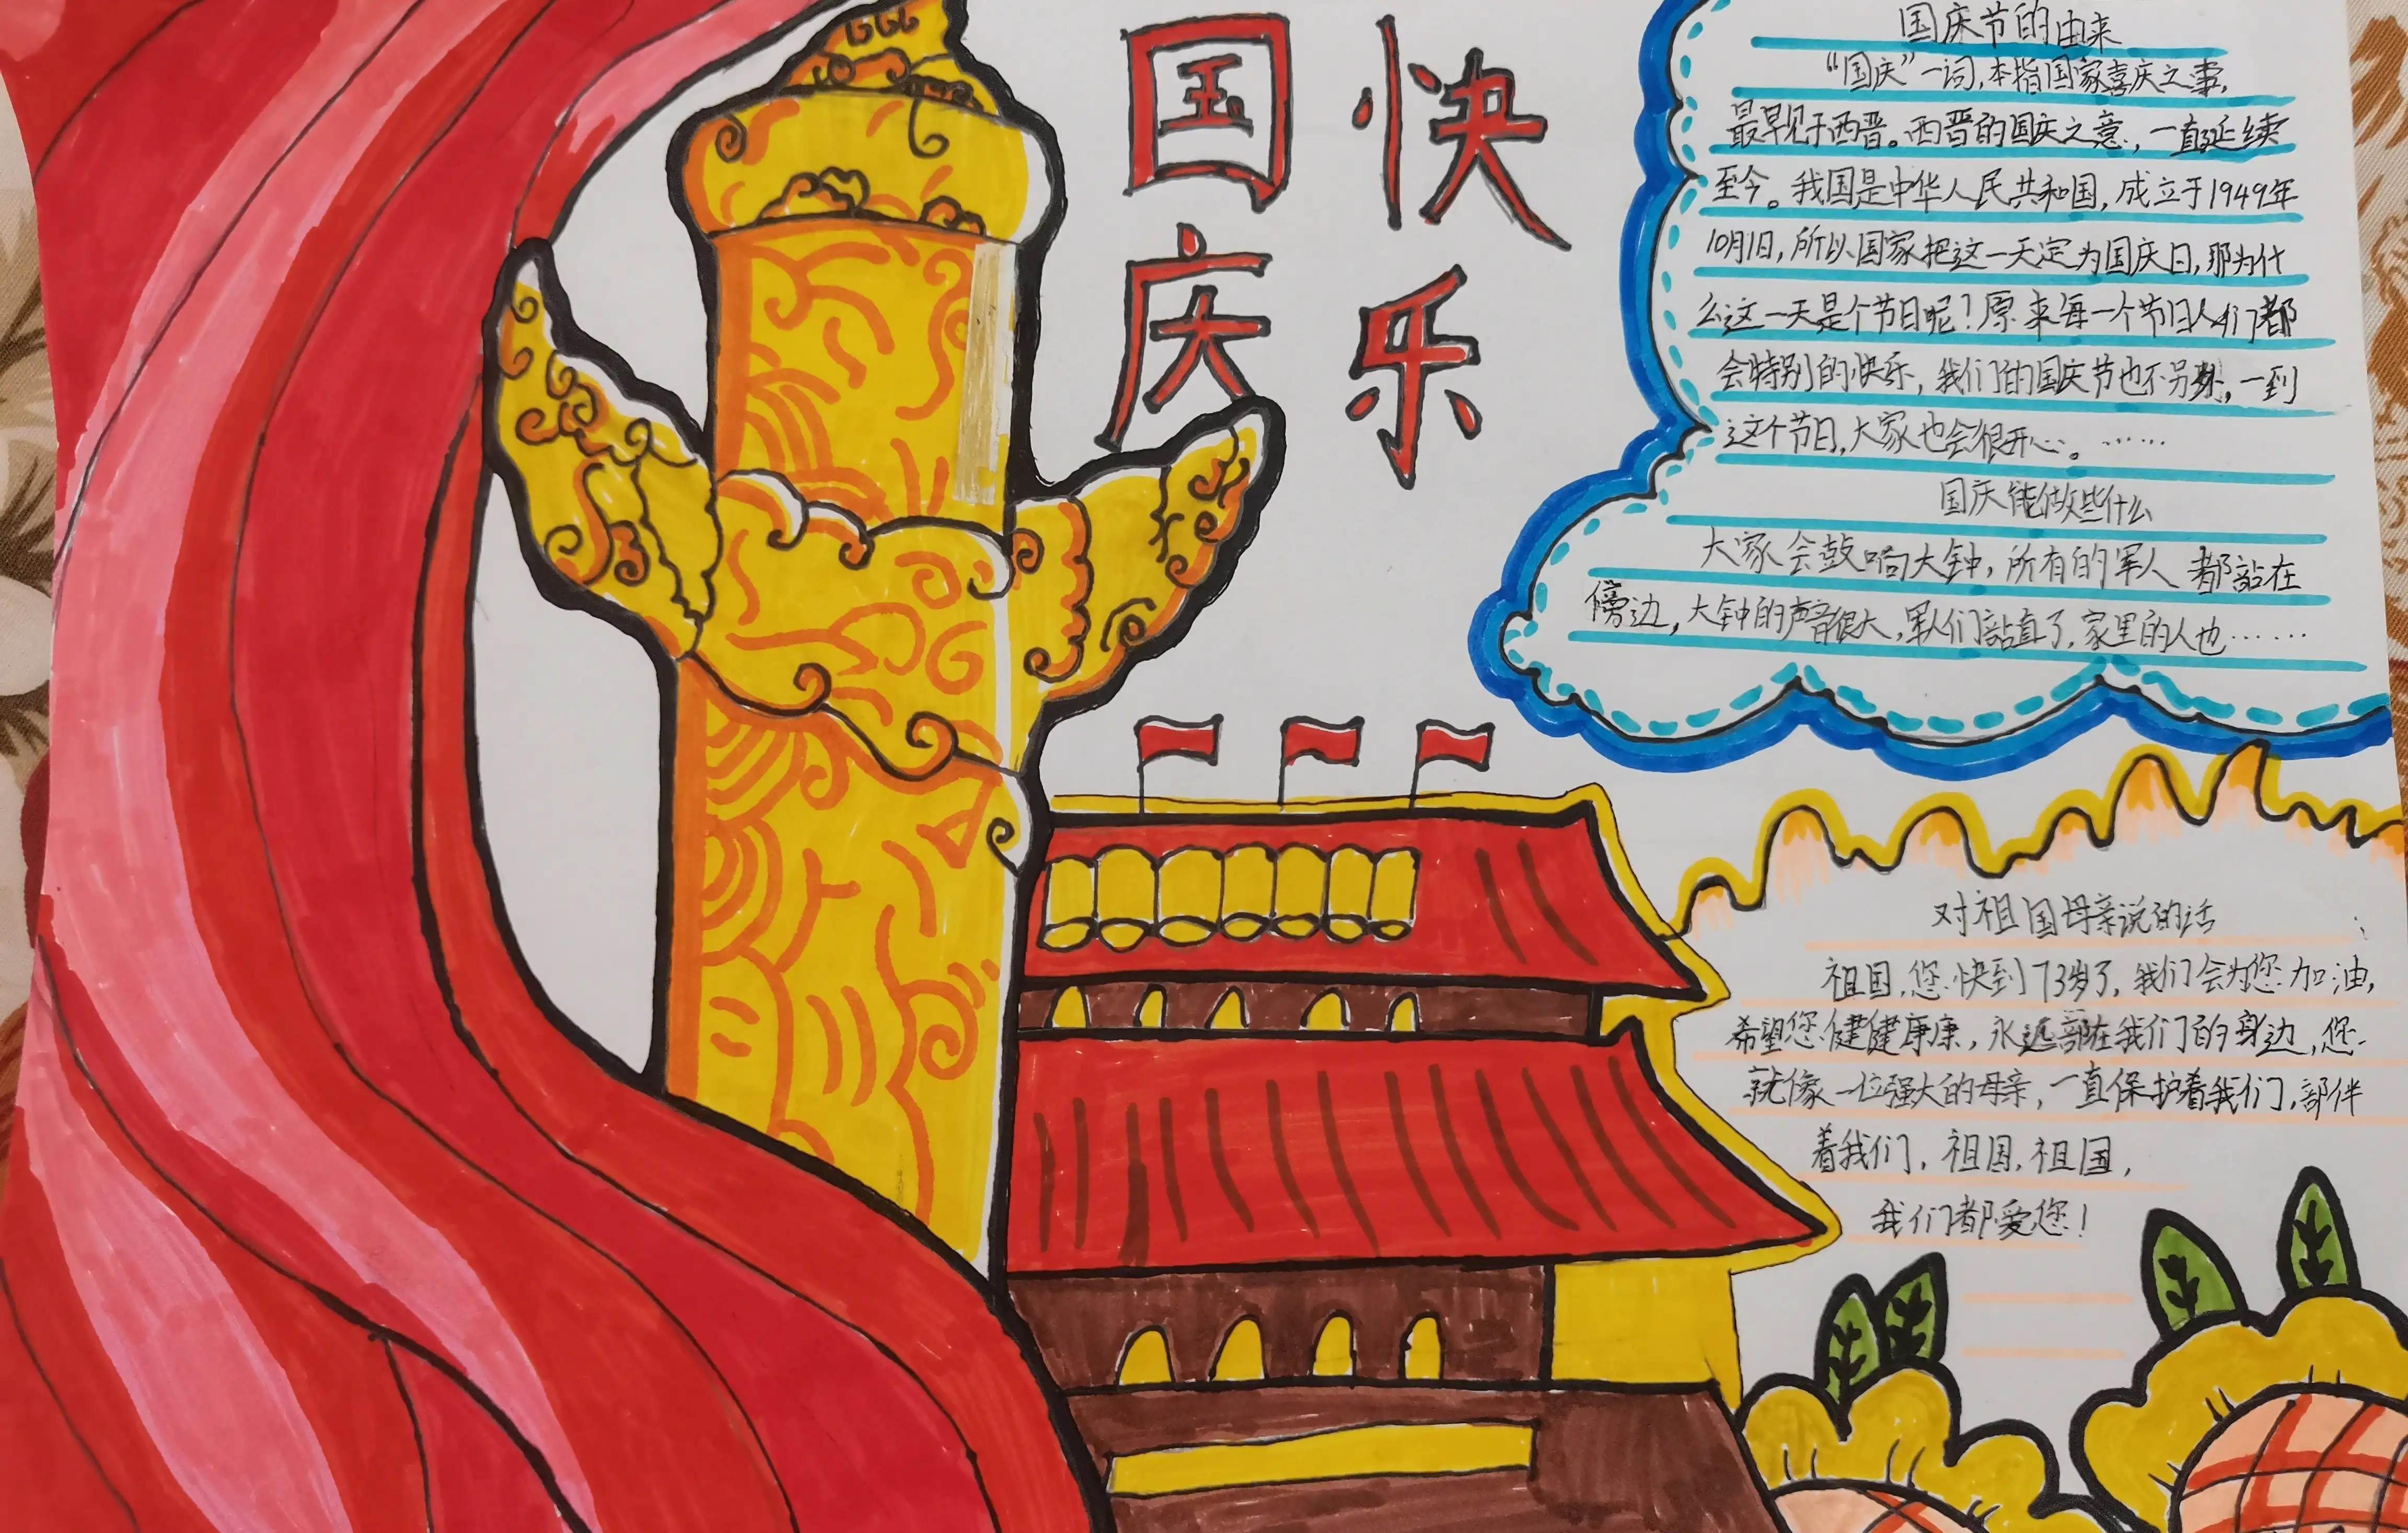 国庆
快乐
国庆节的由来
“国庆”一词,本指国家喜庆之事,
最早见于西晋。西晋的国庆之意,一直延续
至今。我国是中华人民共和国,成立于1949年
10月1日,所以国家把这一天定为国庆日,那为什
么这一天是个节日呢!原来每一个节日人们都
会特别的快乐,我们的国庆节也不另外,一到
这个节日,大家也会很开心。……
国庆能做些什么
大家会鼓响大钟,所有的军人都站在
傍边,大钟的声音很大,军人们站直了,家里的人也……
对祖国母亲说的话
祖国,您快到73岁了,我们会为您加油,
希望您健健康康,永远部在我们的身边,您
就像一位强大的母亲,一直保护着我们,部伴
着我们,祖国,祖国,
我们都爱您!